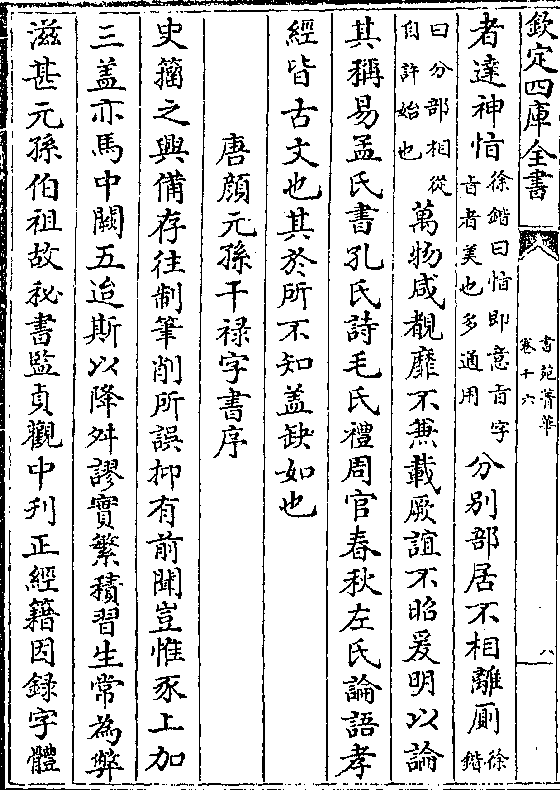 欽定四庫全書
書苑菁華
卷十六
八
者達神恉徐鍇曰恉即意㫖字㫖者美也多通用分別部居不相離厠徐鍇
曰分部相從自許始也萬物咸覩靡不兼載厥誼不昭爰明以論
其稱易孟氏書孔氏詩毛氏禮周官春秋左氏論語孝
經皆古文也其於所不知盖缺如也
唐顔元孫干禄字書序
史籀之興備存往制筆削所誤抑有前聞豈惟豕上加
三盖亦馬中闕五迨斯以降舛謬實繁積習生常為弊
滋甚元孫伯祖故秘書監貞觀中刋正經籍因録字體